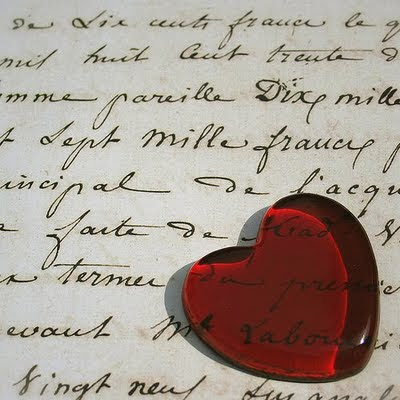 de Six cents francs le
mil huit Cent trente d
omme pareille Dix mille
t Sept Mille francs p
incipal de l'acqu
faite de Mad
termes du premier
evant Me
Vingt neuf